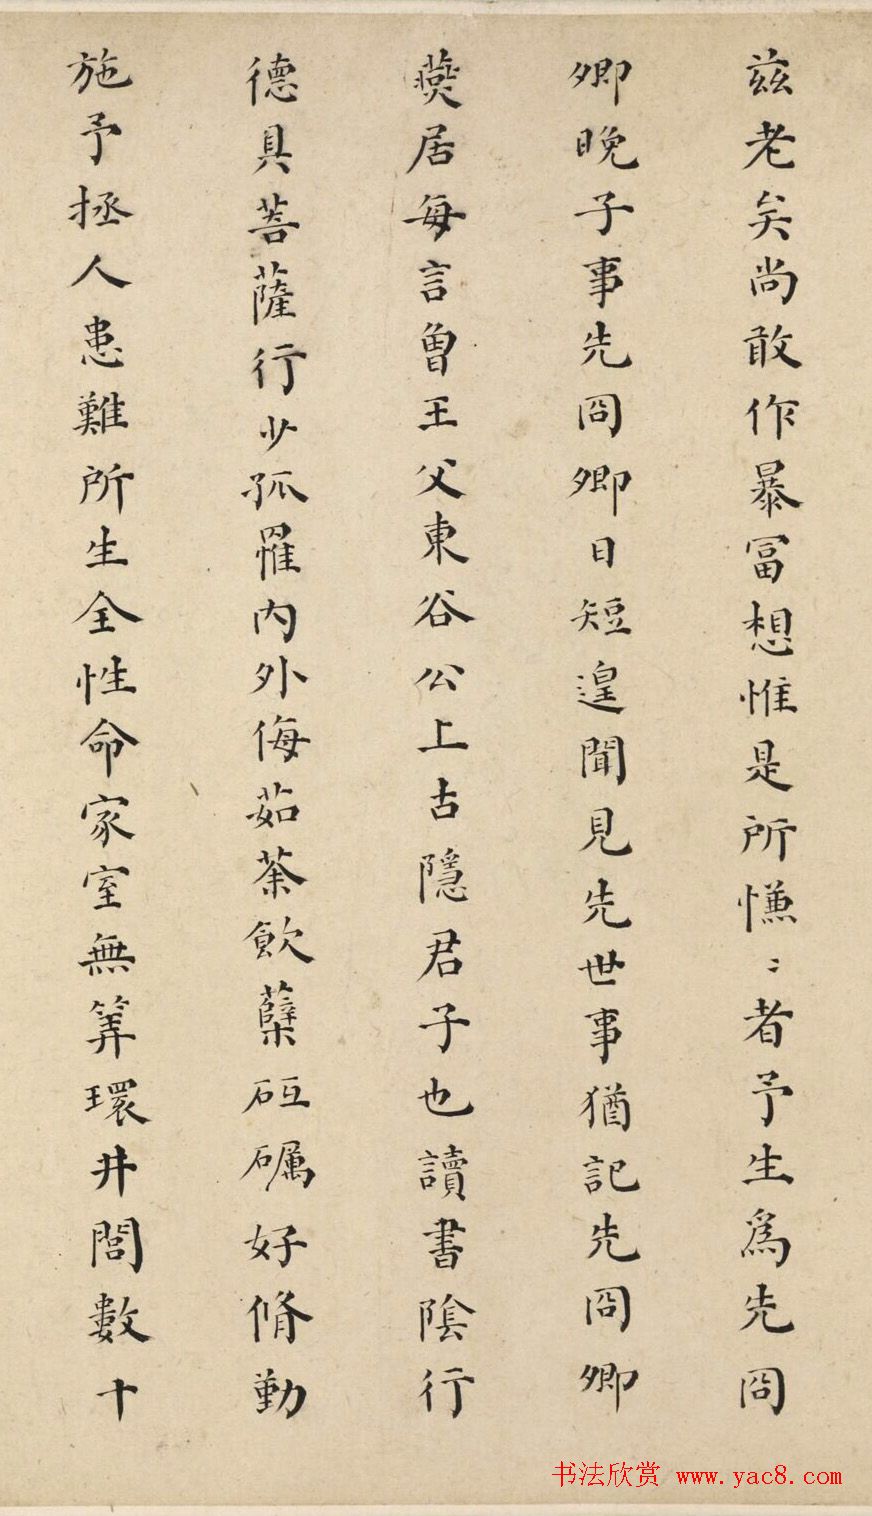 茲老矣尚敢作暴富想惟是所慊〻者予生為先冏
卿晚子事先冏卿日短遑聞見先世事猶記先冏卿
燕居每言曾王父東谷公上古隱君子也讀書陰行
德具菩薩行少孤罹內外侮茹荼飲蘗砥礪好脩勤
施予拯人患難所生全性命家室無筭環井閭數十
书法欣赏 www.yac8.com